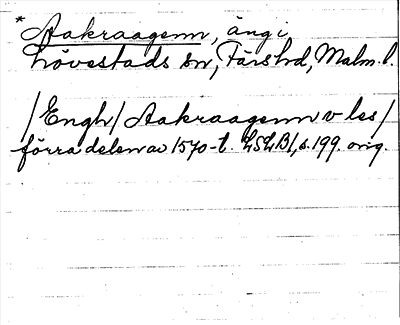 * Aakraagenn, äng i
Lövestads sn, Färs hd, Malm. l.
/Engh/ Aakraagenn v les/
förra delen av 1570-t. LSLB/, s. 199. orig.